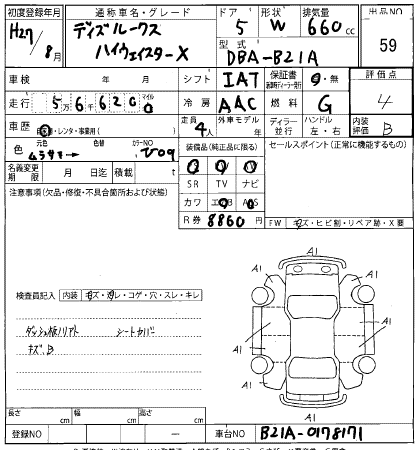 初度登録年月 通称車名・グレード ドア 形状 排気量 出品NO
H27/8月 デイズルークス ハイウェイスターX 5 W 660cc 59
型式 DBA-B21A
車検 年 月 シフト IAT 保証書 有・無 評価点
走行 5万6千620 マイル 冷房 AAC 燃料 G 4
車歴 自家・レンタ・事業用( ) 定員 4人 外車モデル 年 ディーラー 並行 ハンドル 左・右 内装評価 B
色 元色 色替 カラーNO 装備品(純正品に限る) セールスポイント(正常に機能するもの)
名義変更期限 月 日迄 積載 t
SR TV ナビ
注意事項(欠品・修復・不具合箇所および状態) カワ
R券 8860 FW キズ・ヒビ割・リペア跡・X要
A1
A1 A1
検査員記入 内装 キズ・汚レ・コゲ・穴・スレ・キレ A1 A1
シートカバー
キズB A1 A1
A1
長さ cm 幅 cm 高さ cm
登録NO — 車台NO B21A-0178171